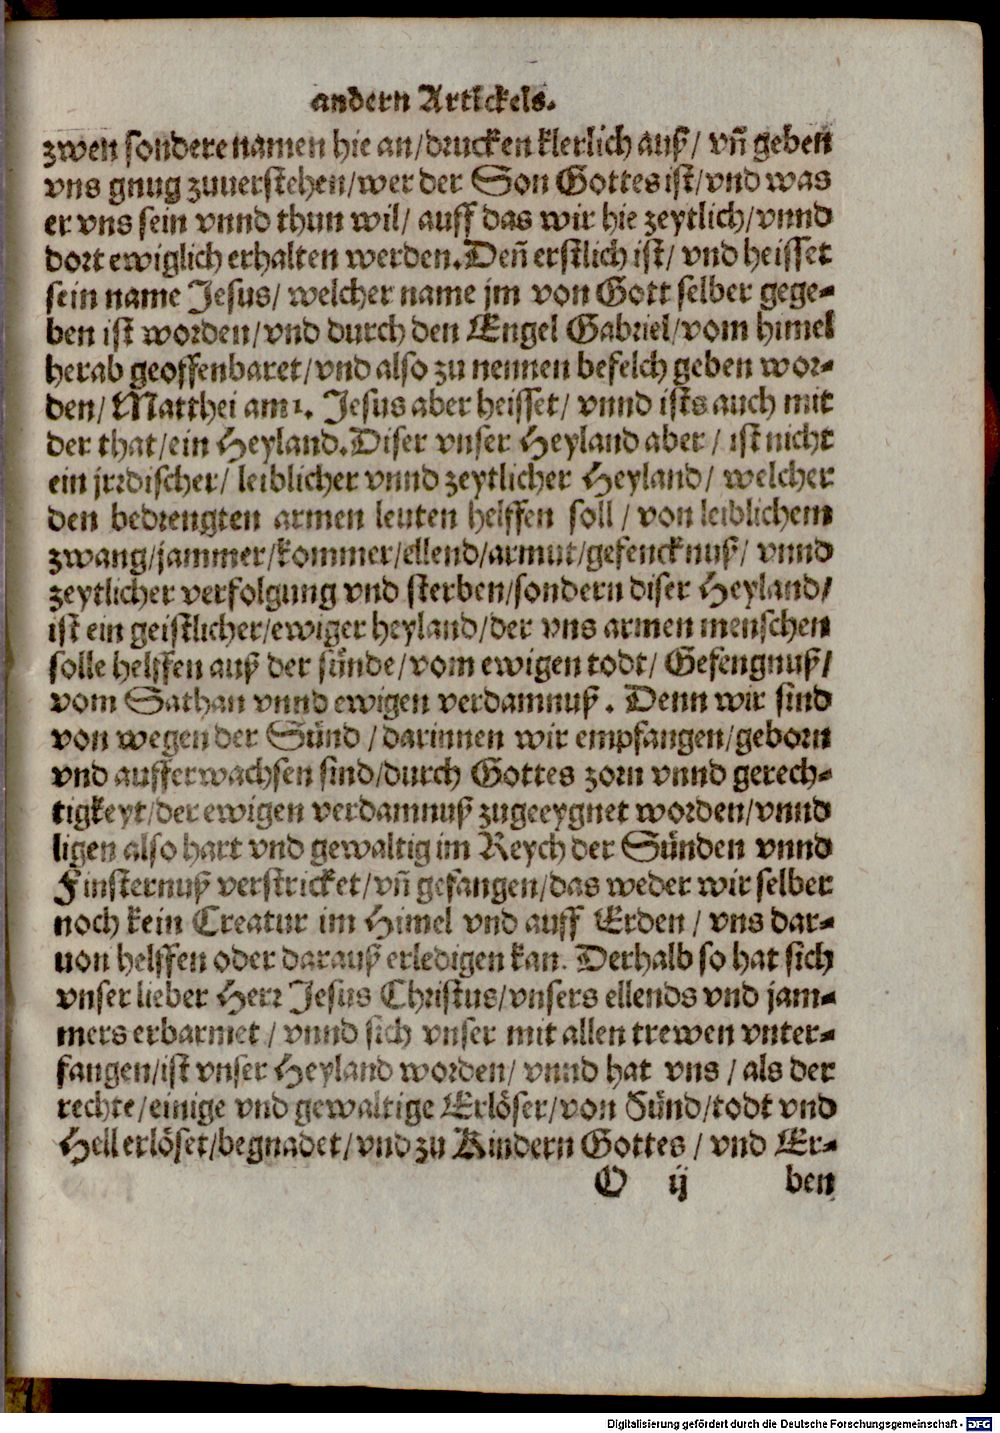 andern Artickels.
zwen sondere namen hie an/drucken klerlich auß/ vñ geben
vns gnug zuuerstehen/wer der Son Gottes ist/vnd was
er vns sein vnnd thun wil/ auff das wir hie zeytlich/vnnd
dort ewiglich erhalten werden. Deñ erstlich ist/ vnd heisset
sein name Jesus/ welcher name jm von Gott selber gege-
ben ist worden/vnd durch den Engel Gabriel/vom himel
herab geoffenbaret/vnd also zu nennen befelch geben wor-
den/ Matthei am 1. Jesus aber heisset/ vnnd ists auch mit
der that/ein Heyland. Diser vnser Heyland aber / ist nicht
ein jrrdischer/ leiblicher vnnd zeytlicher Heyland/ welcher
den bedrengten armen leuten helffen soll / von leiblichem
zwang/jammer/kommer/ellend/armut/gefencknuß/ vnnd
zeytlicher verfolgung vnd sterben/sondern diser Heyland/
ist ein geistlicher/ewiger heyland/der vns armen menschen
solle helffen auß der sünde/vom ewigen todt/ Gefengnuß/
vom Sathan vnnd ewigen verdamnuß. Denn wir sind
von wegen der Sünd / darinnen wir empfangen/geborn
vnd aufferwachsen sind/durch Gottes zorn vnnd gerech-
tigkeyt/der ewigen verdamnuß zugeeygnet worden/vnnd
ligen also hart vnd gewaltig im Reych der Sünden vnnd
Finsternuß verstricket/vñ gefangen/das weder wir selber
noch kein Creatur im Himel vnd auff Erden / vns dar-
uon helffen oder darauß erledigen kan. Derhalb so hat sich
vnser lieber Herr Jesus Christus/vnsers ellends vnd jam-
mers erbarmet / vnnd sich vnser mit allen trewen vnter-
fangen/ist vnser Heyland worden/ vnnd hat vns / als der
rechte/einige vnd gewaltige Erlöser/von Sünd/todt vnd
Hell erlöset/begnadet/vnd zu Kindern Gottes / vnd Er-
O ij ben
Digitalisierung gefördert durch die Deutsche Forschungsgemeinschaft - DFG